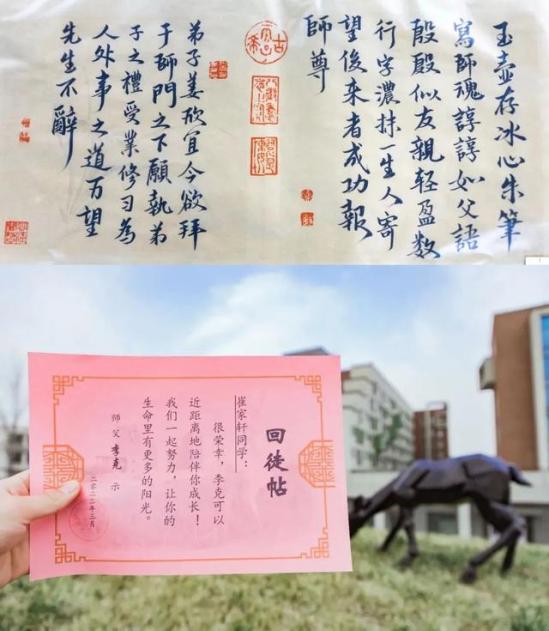 玉壺存冰心朱筆
寫師魂諄諄如父語
殷殷似友親輕盈數
行字濃抹一生人寄
望後来者成功報
師尊
弟子姜欣宜今欲拜
于師門之下願執弟
子之禮受業修习為
人处事之道万望
先生不辭
回徒帖
崔家轩同学：
很荣幸，李克可以
近距离地陪伴你成长！
我们一起努力，让你的
生命里有更多的阳光。
师父 李克 示
二〇二二年三月